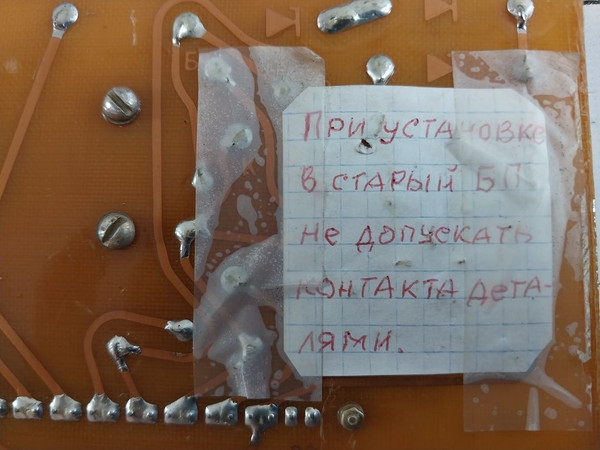 При установке
в старый БП
не допускать
контакта дета-
лями.